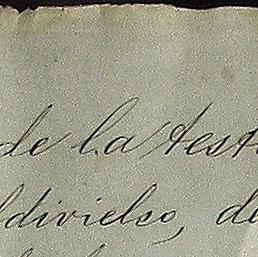 de la testa
ldivielso, de